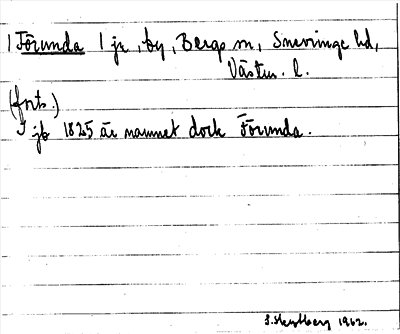 | Forunda 1 ja, by, Bergs sn, Snevringe hd,
Västm. l.
(forts.)
I jb 1825 är namnet dock Forunda.
1962.